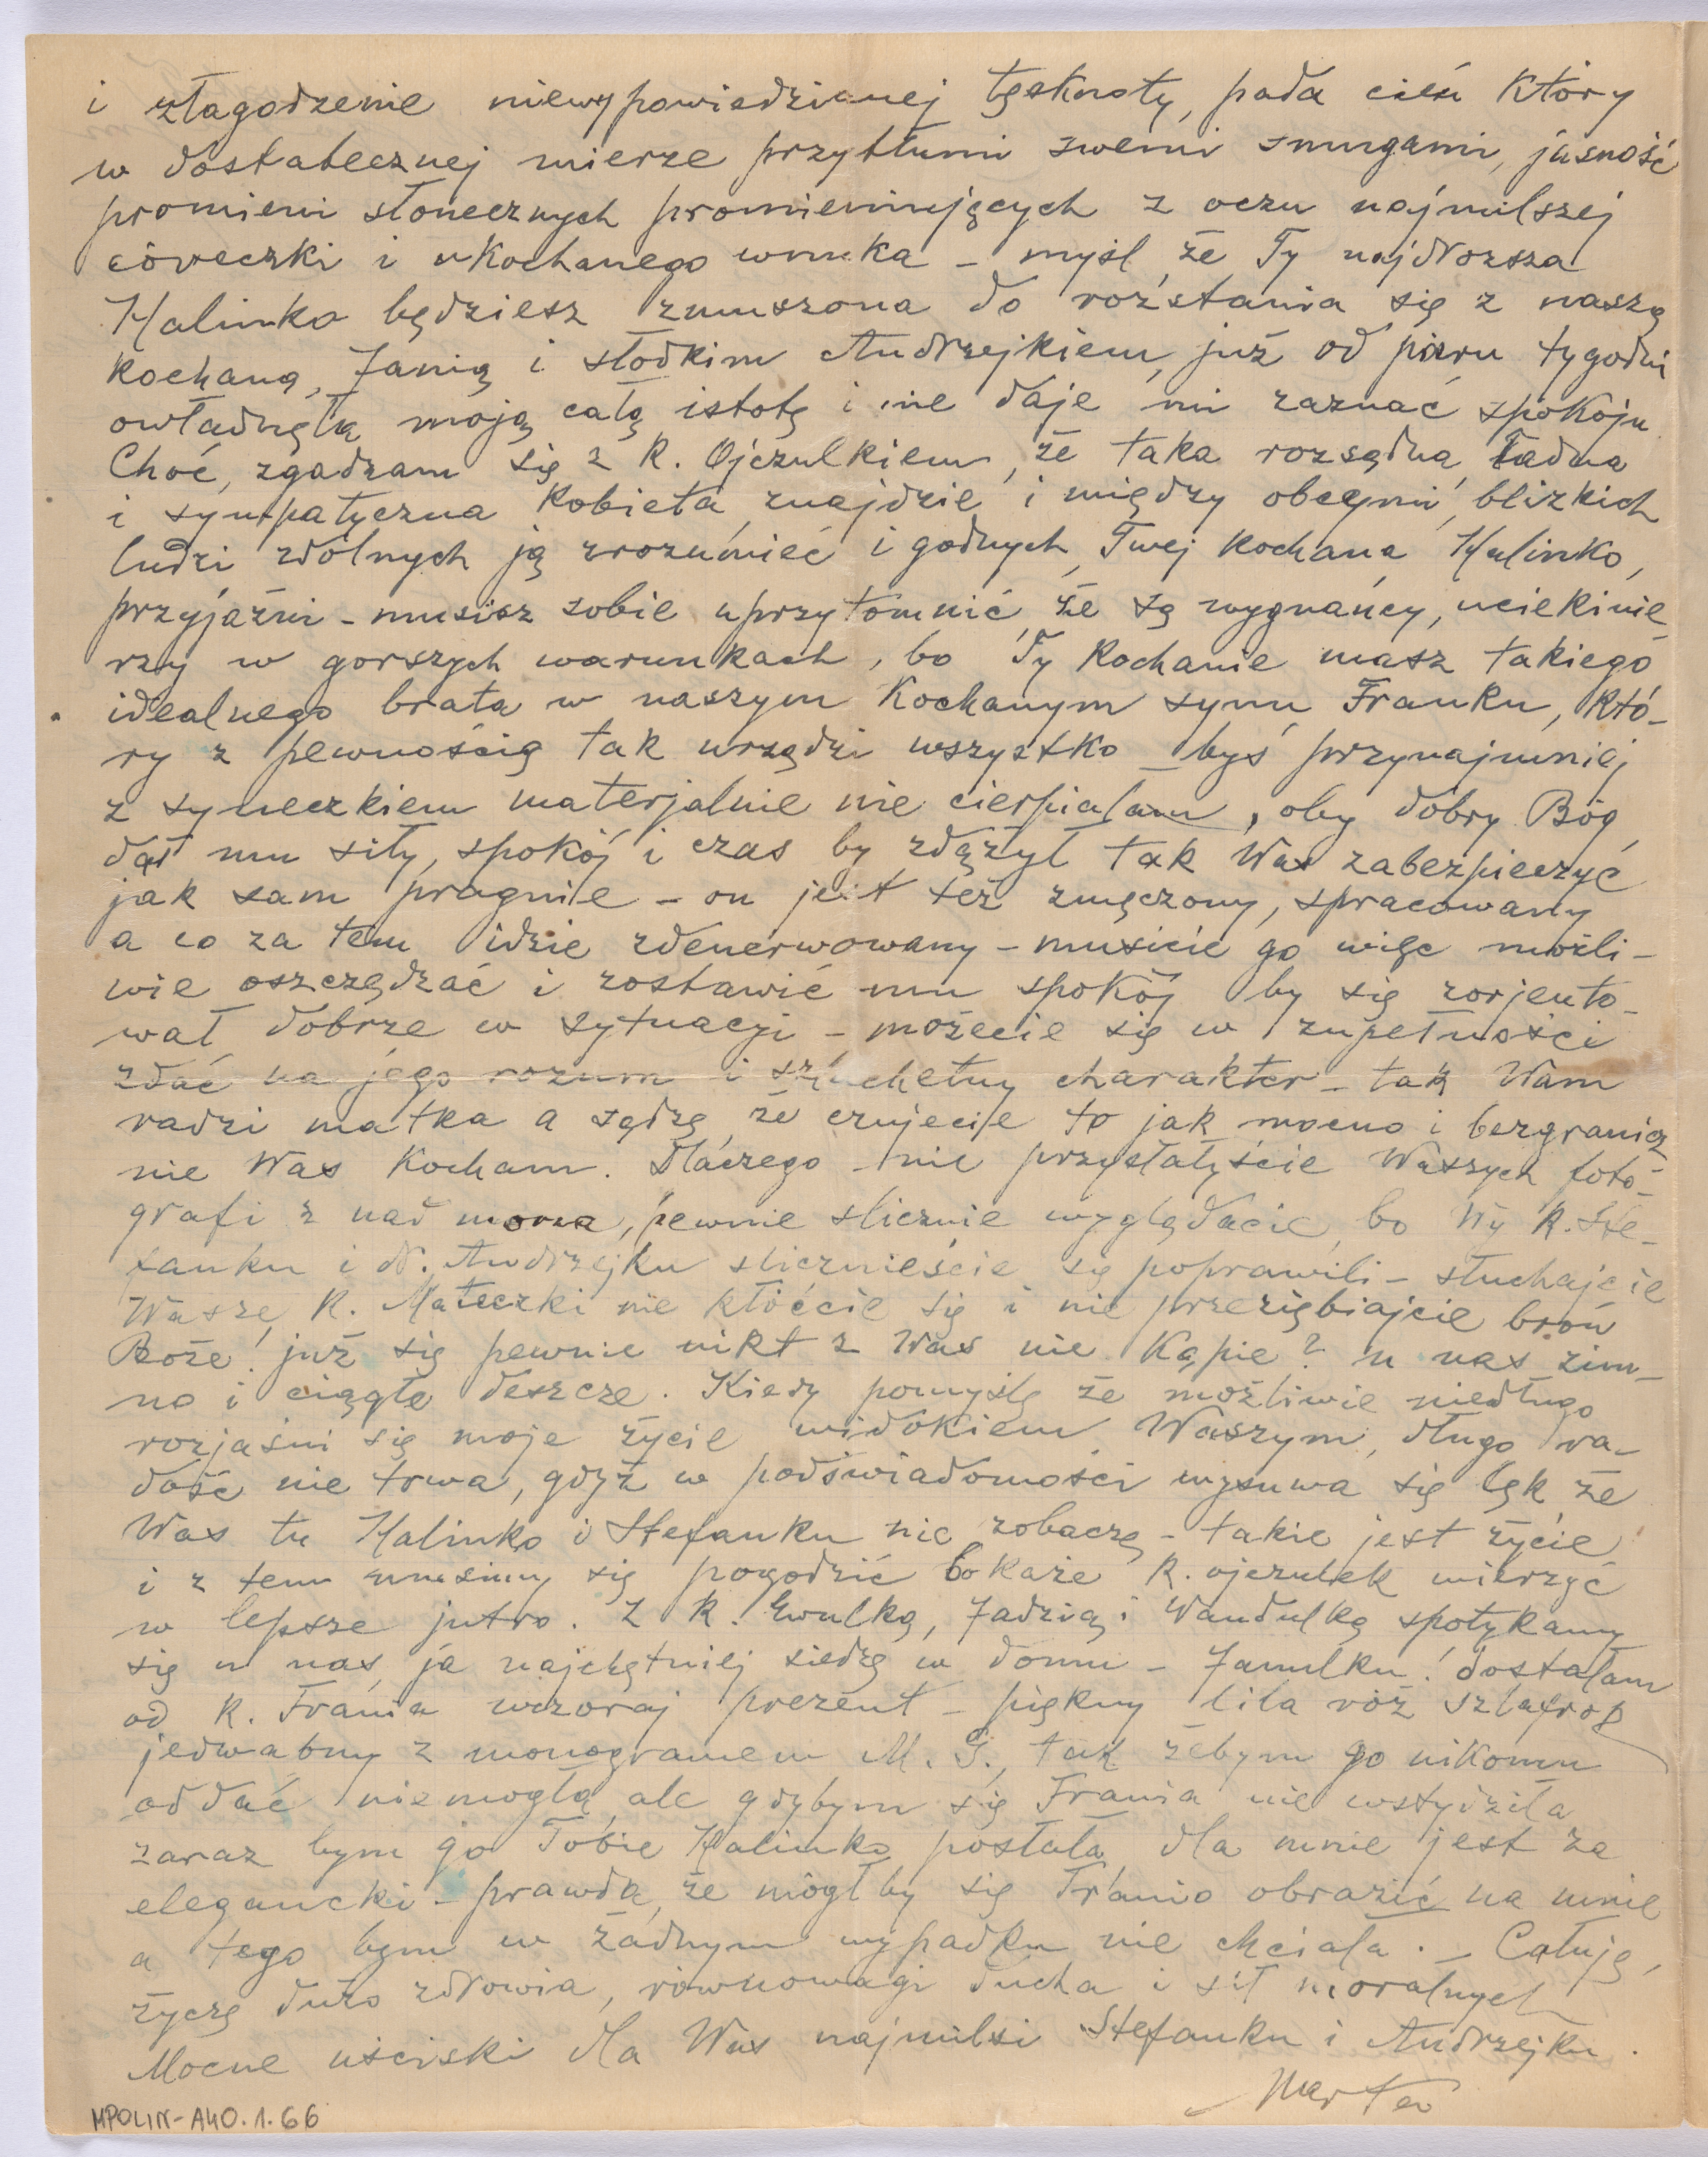 i złagodzenie niewypowiedzianej tęsknoty, pada cień który
w dostatecznej mierze przytłumi swemi smugami, jasność
promieni słonecznych promieniujących z oczu najmilszej
córeczki i ukochanego wnuka – myśl że Ty najdroższa
Halinko będziesz zmuszona do rozstania się z naszą
kochaną, Janią i słodkim Andrzejkiem, już od paru tygodni
owładnęła moją całą istotę i nie daje mi zaznać spokoju
Choć, zgadzam się z K. Ojczulkiem, że taka rozsądna, ładna
i sympatyczna kobieta znajdzie i między obcymi, blizkich
ludzi zdolnych ją zrozumieć i godnych, Twej kochana Halinko,
przyjaźni – musisz sobie uprzytomnić że są wygnańcy, uciekinie_
rzy w gorszych warunkach, bo Ty Kochanie masz takiego
idealnego brata w naszym Kochanym synu Franku, któ-
ry z pewnością tak urządzi wszystko – byś przynajmniej
z syneczkiem materjalnie nie cierpiałam, oby dobry Bóg
dał mu siły, spokój i czas by zdążył tak Was zabezpieczyć
jak sam pragnie – on jest też zmęczony, spracowany
a co za tem idzie zdenerwowany – musicie go więc możli-
wie oszczędzać i zostawić mu spokój by się zorjento-
wał dobrze w sytuacji – możecie się w zupełności
zdać na jego rozum i szlachetny charakter – tak Wam
radzi matka a sądzę że czujecie to jak mocno i bezgranicz-
nie Was Kocham. Dlaczego nie przysłałyście Waszych foto-
grafi z nad morza, pewnie ślicznie wyglądacie, bo Wy K. Ste-
fanku i D. Andrzejku ślicznieście się poprawili – słuchajcie
Wasze K. Mateczki nie kłóćcie się i nie przeziębiajcie broń
Boże! już się pewnie nikt z Was nie kąpie? u nas zim-
no i ciągłe deszcze. Kiedy pomyślę że możliwie niedługo
rozjaśni się moje życie widokiem Waszym, długo ra-
dość nie trwa, gdyż w podświadomości wysuwa się lęk że
Was tu Halinko i Stefanku nie zobaczę – takie jest życie
i z tem musimy się pogodzić bo każe K. ojczulek wierzyć
w lepsze jutro. Z K. Ewulką, Jadzią i Wandulką spotykamy
się u nas, ja najchętniej siedzę w domu – Janulku! dostałam
od K. Frania wczoraj prezent – piękny lila róż szlafrok
jedwabny z monogramem M. G., tak żebym go nikomu
oddać niemogła, ale gdybym się Frania nie wstydziła
zaraz bym go Tobie Halinko posłała dla mnie jest za
elegancki – prawda, że mógłby się Franio obrazić na mnie
a tego bym w żadnym wypadku nie chciała. – Całuję,
życzę dużo zdrowia, równowagi ducha i sił moralnych
Mocne uściski dla Was najmilsi Stefanku i Andrzejku.
MPOLIN-A40.1.66